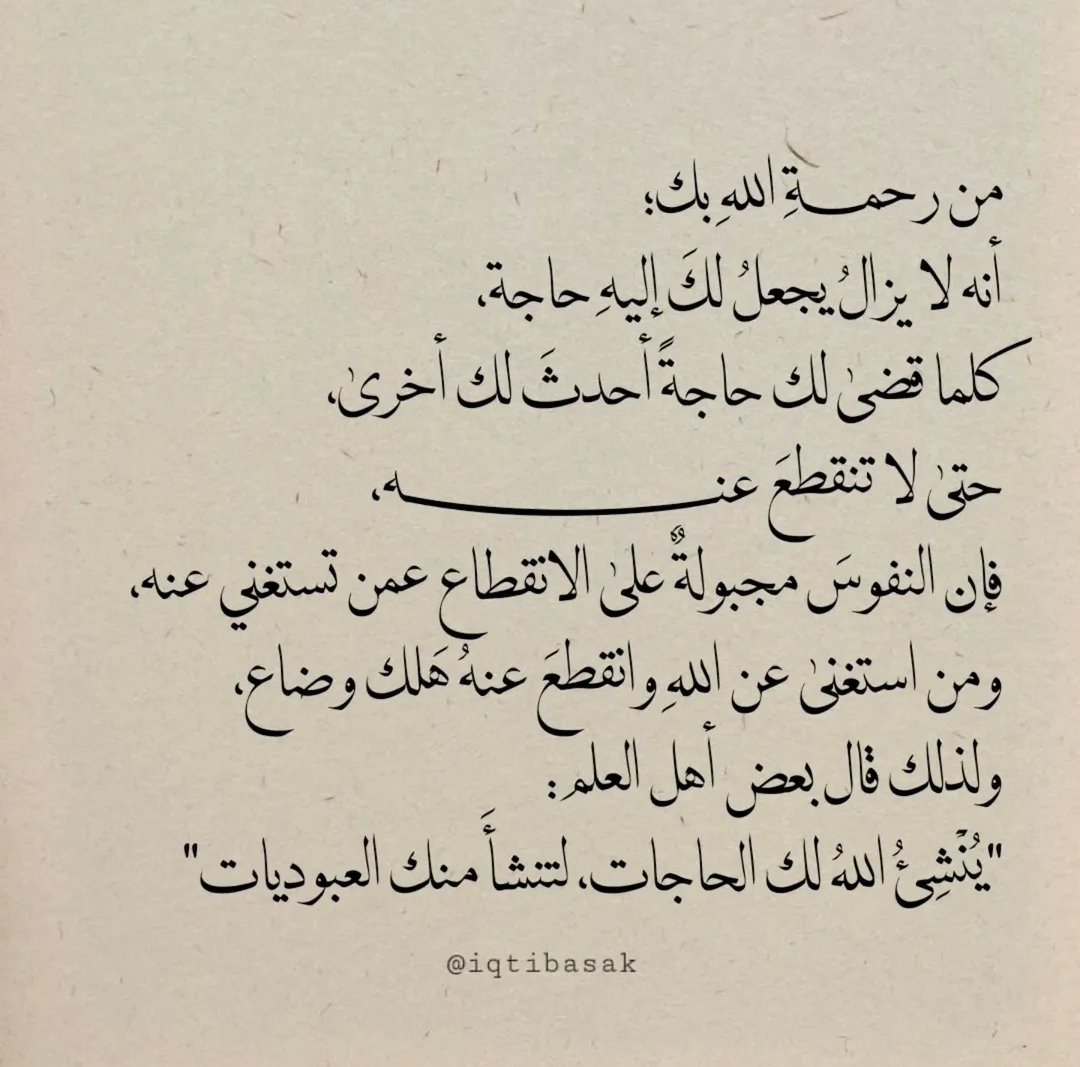 من رحمـــةِ اللهِ بك؛
أنه لا يزالُ يجعلُ لكَ إليهِ حاجة،
كلما قضىٰ لك حاجةً أحدثَ لك أخرىٰ،
حتىٰ لا تنقطعَ عنـــــــــه،
فإن النفوسَ مجبولةٌ علىٰ الانقطاع عمن تستغني عنه،
ومن استغنىٰ عن اللهِ وانقطعَ عنهُ هَلك وضاع،
ولذلك قال بعض أهل العلم:
"يُنْشِئُ اللهُ لك الحاجات، لتنشأَ منك العبوديات"
@iqtibasak